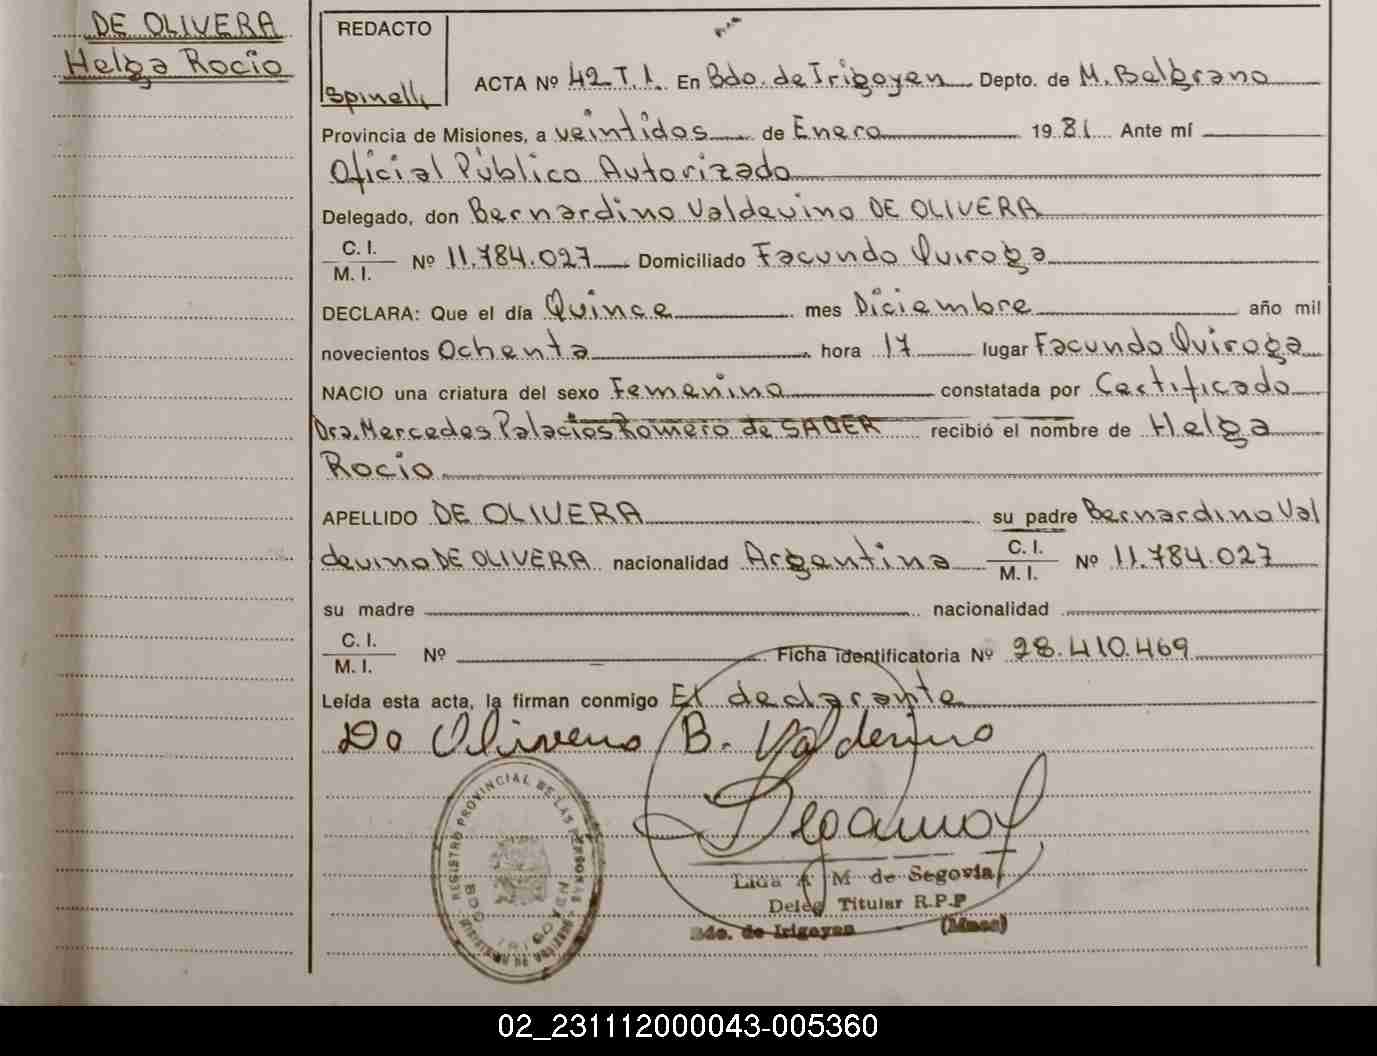 DE OLIVERA
Helga Rocio
REDACTO
Spinelli
ACTA Nº 42 T.I. En Bdo. de Irigoyen Depto. de M. Belgrano
Provincia de Misiones, a veintidos de Enero 1981 Ante mí
Oficial Público Autorizado
Delegado, don Bernardino Valdevino DE OLIVERA
C. I.
M. I. Nº 11.784.027 Domiciliado Facundo Quiroga
DECLARA: Que el día Quince mes Diciembre año mil
novecientos Ochenta hora 17 lugar Facundo Quiroga
NACIO una criatura del sexo Femenino constatada por Certificado
Dra. Mercedes Palacios Romero de SADER recibió el nombre de Helga
Rocio
APELLIDO DE OLIVERA su padre Bernardino Val
devino DE OLIVERA nacionalidad Argentina C. I. M. I. Nº 11.784.027
su madre nacionalidad
C. I.
M. I. Nº Ficha identificatoria Nº 28.410.469
Leída esta acta, la firman conmigo El declarante
De Olivera B. Valdevino
M de Segovia
Deleg Titular R.P.P
Bdo. de Irigoyen (Mnes)
REGISTRO PROVINCIAL DE LAS PERSONAS
BDO IRIGOYEN
02_231112000043-005360